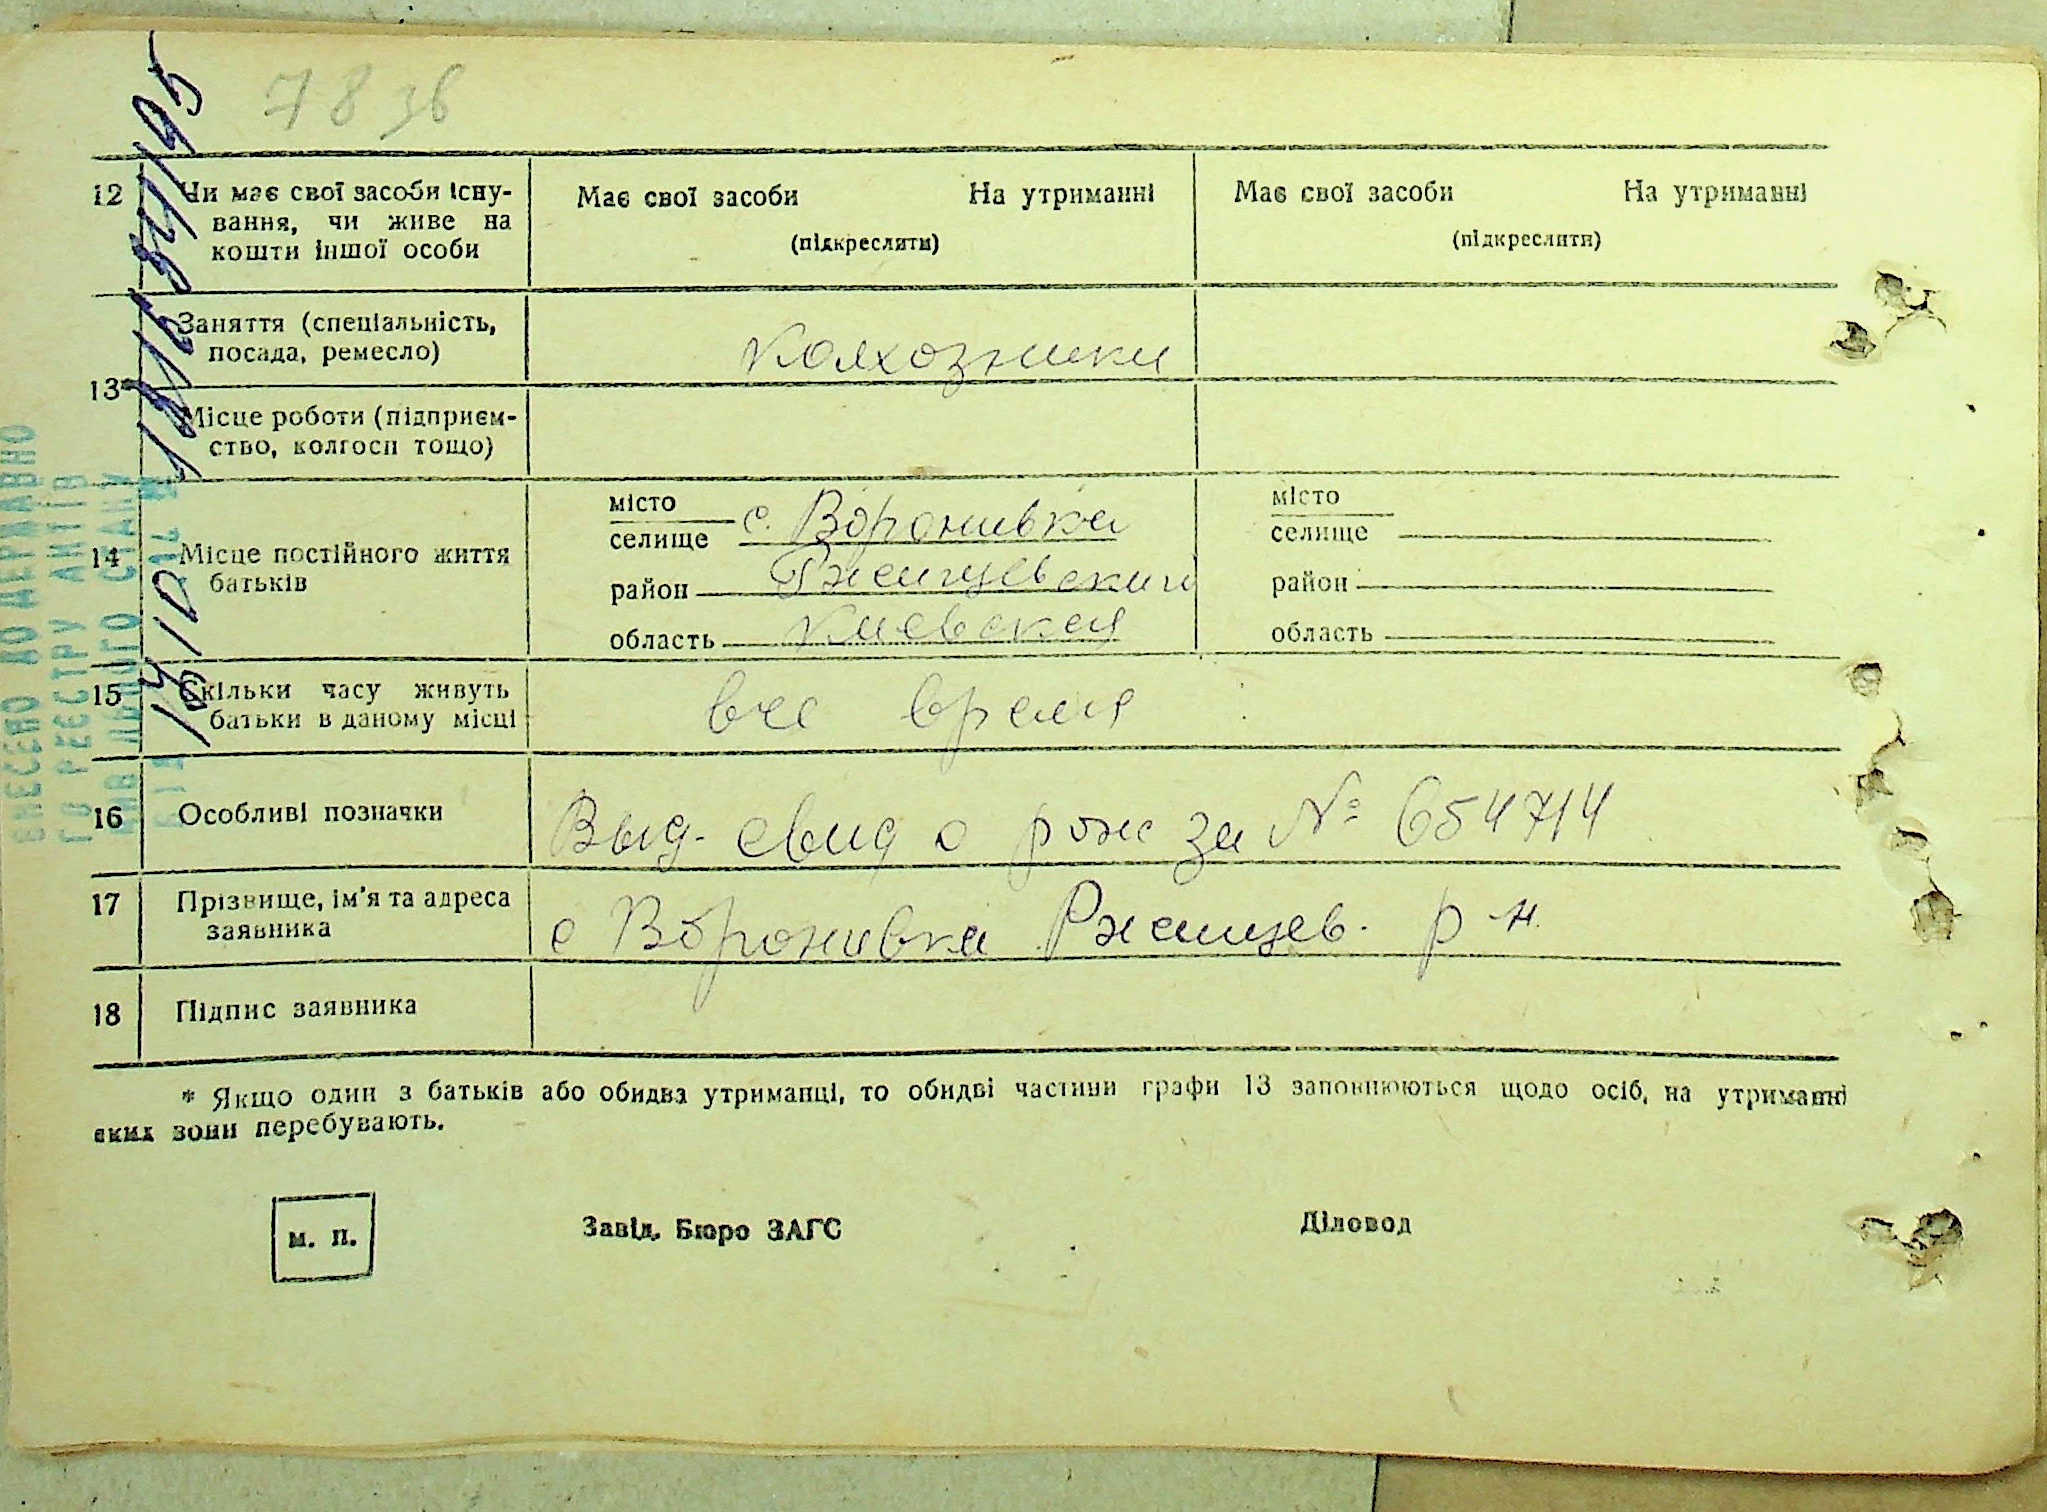 78 зв
12 Чи має свої засоби існу-
вання, чи живе на
кошти іншої особи
Має свої засоби На утриманні
(підкреслити)
Має свої засоби На утриманні
(підкреслити)
13*
Заняття (спеціальність,
посада, ремесло)
колхозники
Місце роботи (підприєм-
ство, колгосп тощо)
14 Місце постійного життя
батьків
місто
селище с. Воронивка
район Ржищевский
область Киевская
місто
селище
район
область
15 Скільки часу живуть
батьки в даному місці
все время
16 Особливі позначки
Выд. свид о рож за № 654714
17 Прізвище, ім'я та адреса
заявника
с Воронивка Ржищев. р-н.
18 Підпис заявника
* Якщо один з батьків або обидва утриманці, то обидві частини графи 13 заповнюються щодо осіб, на утриманні
яких вони перебувають.
м. п.
Завід. Бюро ЗАГС
Діловод
ВНЕСЕНО ДО ДЕРЖАВНО
ГО РЕЄСТРУ АКТІВ
ЦИВІЛЬНОГО СТАНУ